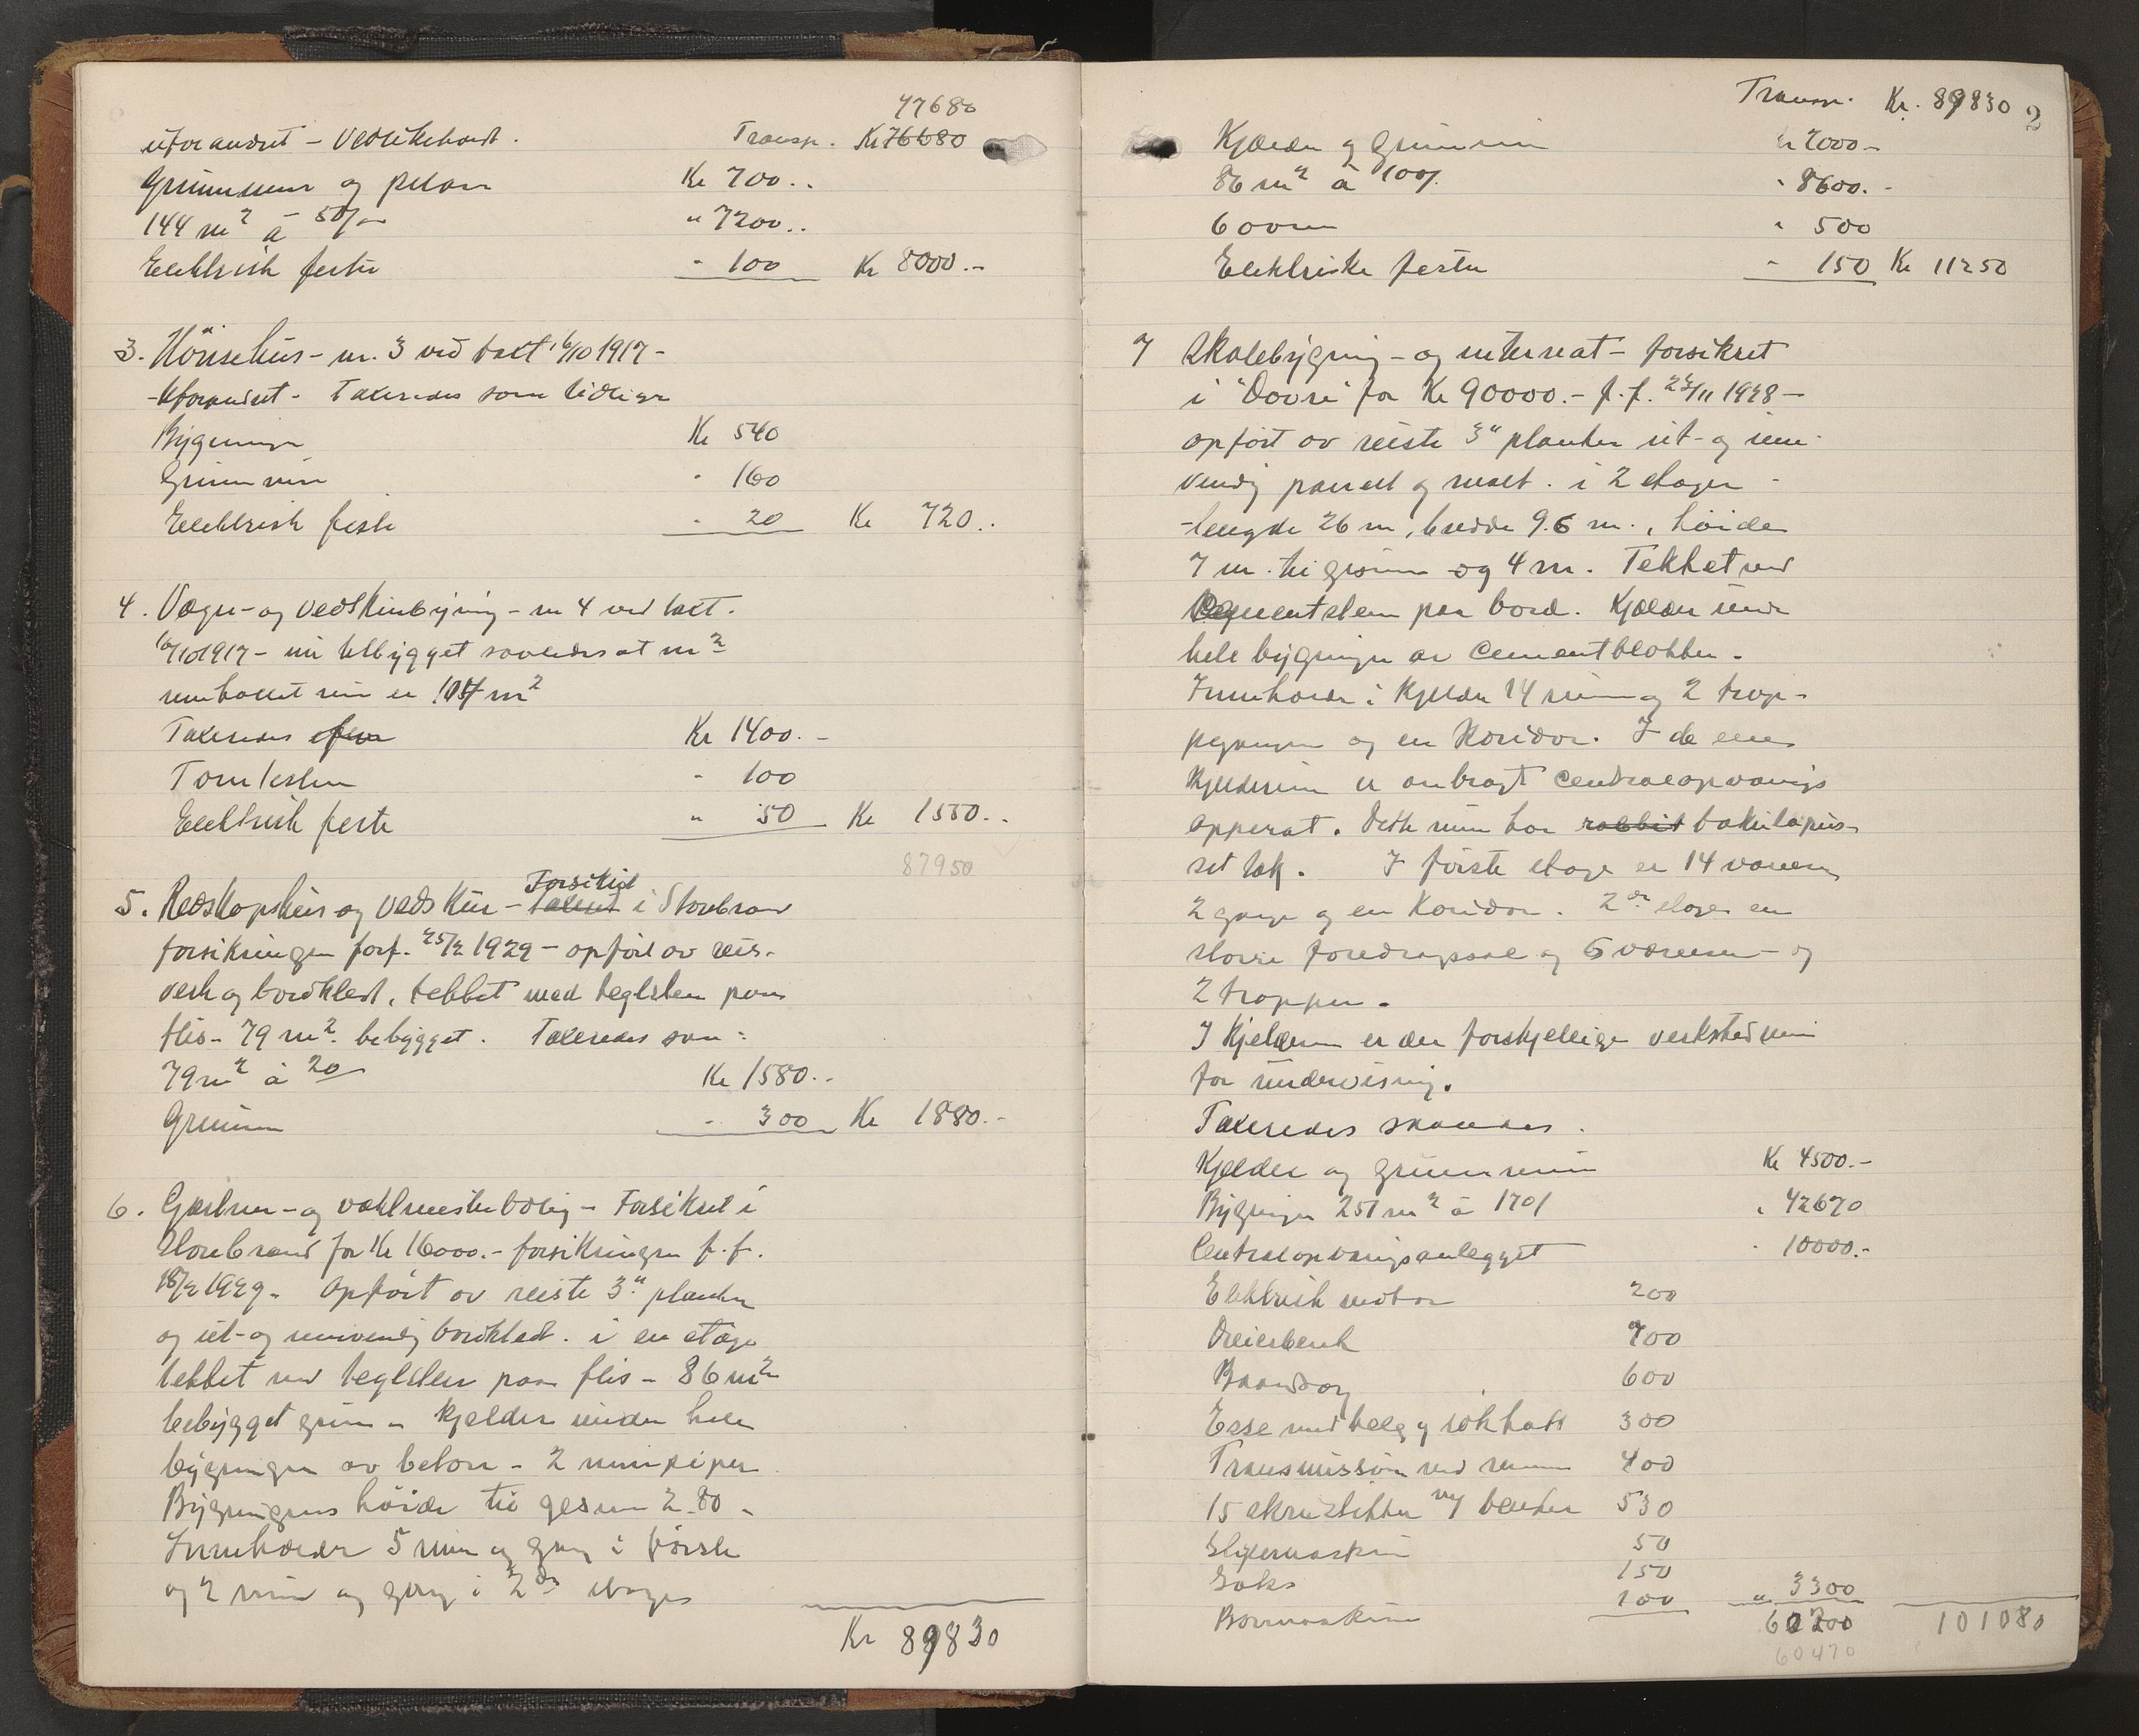 77680
uforandret - Vedlikeholdt. Transp. Kr 76680
Grunnmur og pilarer Kr 700..
144 m² à 50/- " 7200..
Elektrisk feste " 100 Kr 8000.-
3. Hönsehus - nr. 3 ved takt 16/10 1917 -
- Uforandret - Takseredes som tidligere
Bygningen Kr 540
Grunnmur " 160
Elektrisk feste " 20 Kr 720..
4. Vogn- og vedskjulbygning - nr 4 ved takst.
16/10 1917 - nu tilbygget saaledes at m²
innholdet nu er 104 m²
Takseredes Kr 1400.-
Tomtesten " 100
Elektrisk feste " 50 Kr 1550..
87950
5. Redskapshus og vedskur - Forsikret Taksert i Storebrand
forsikringen forf. 25/2 1929 - opfört av reis-
verk og bordkledt, tekket med teglsten paa
flis - 79 m² bebygget. Takseredes som:
79 m² à 20/- Kr 1580..
Grunnmur " 300 Kr 1880.-
6. Gartner- og vaktmesterbolig - Forsikret i
Storebrand for Kr 16000.- forsikringen f.f.
18/2 1929. Opfört av reiste 3" planker
og ut- og innvendig bordkledt. i en etage
tekket med teglsten paa flis - 86 m²
bebygget grunn - kjelder under hele
bygningen av beton - 2 murpiper
Bygningens höide til gesims 2.80 -
Inneholder 5 rum og gang i förste
og 2 rum og gang i 2den etage
Kr 89830
Transp. Kr. 89830 2
Kjelder og Grunnmur Kr 2000-
86 m² à 100/. " 8600.-
6 ovner " 500
Elektriske fester " 150 Kr 11250
7 Skolebygning - og internat - forsikret
i "Dovre" for Kr 90000.- f.f. 23/11 1928 -
opfört av reiste 3" planker ut- og inn-
vendig panelt og malt. i 2 etager -
- lengde 26 m, bredde 9.6 m., höide
7 m. til gesims og 4 m. Tekket med
Cementsten paa bord. Kjelder under
hele bygningen av Cementblokker.
Inneholder i kjelder 14 rum og 2 trap-
peganger og en Koridor. I de ene
kjelderrum er anbragt centralopvarmings
apperat. Dette rum har rabbit bakulapus-
set tak. I förste etage er 14 værelser
2 gange og en Koridor. 2den etage en
större foredragssal og 6 værelser - og
2 trapper.
I Kjelderen er der forskjellige verkstedrum
for undervisning.
Takseredes saaledes.
Kjelder og grunnmur Kr 4500.-
Bygningen 251 m² à 170/ " 42670
Centralopvarmingsanlegget " 10000.-
Elektrisk motor 200
Dreierbenk 900
Baandsag 600
Esse med belg og rökhatt 300
Transmission med remmer 400
15 skrustikker m/ benker 530
Slipemaskin 50
Saks 150
Bormaskin 100 " 3300
60200 101080
60470